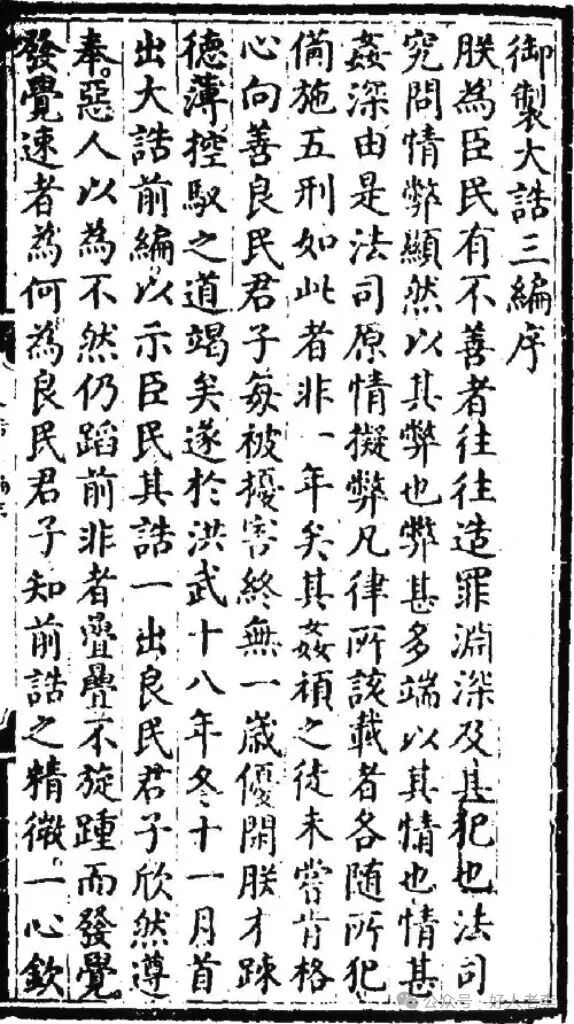 御製大誥三編序
朕為臣民有不善者往往造罪淵深及其犯也法司
究問情弊顯然以其弊也弊甚多端以其情也情甚
姦深由是法司原情擬弊凡律所該載者各隨所犯
備施五刑如此者非一年矣其姦頑之徒未嘗肯格
心向善良民君子每被擾害終無一歲優閑朕才踈
德薄控馭之道竭矣遂於洪武十八年冬十一月首
出大誥前編以示臣民其誥一出良民君子欣然遵
奉。惡人以為不然仍蹈前非者疊疊不旋踵而發覺。
發覺速者為何為良民君子知前誥之精微。一心欽
公众号·好人老